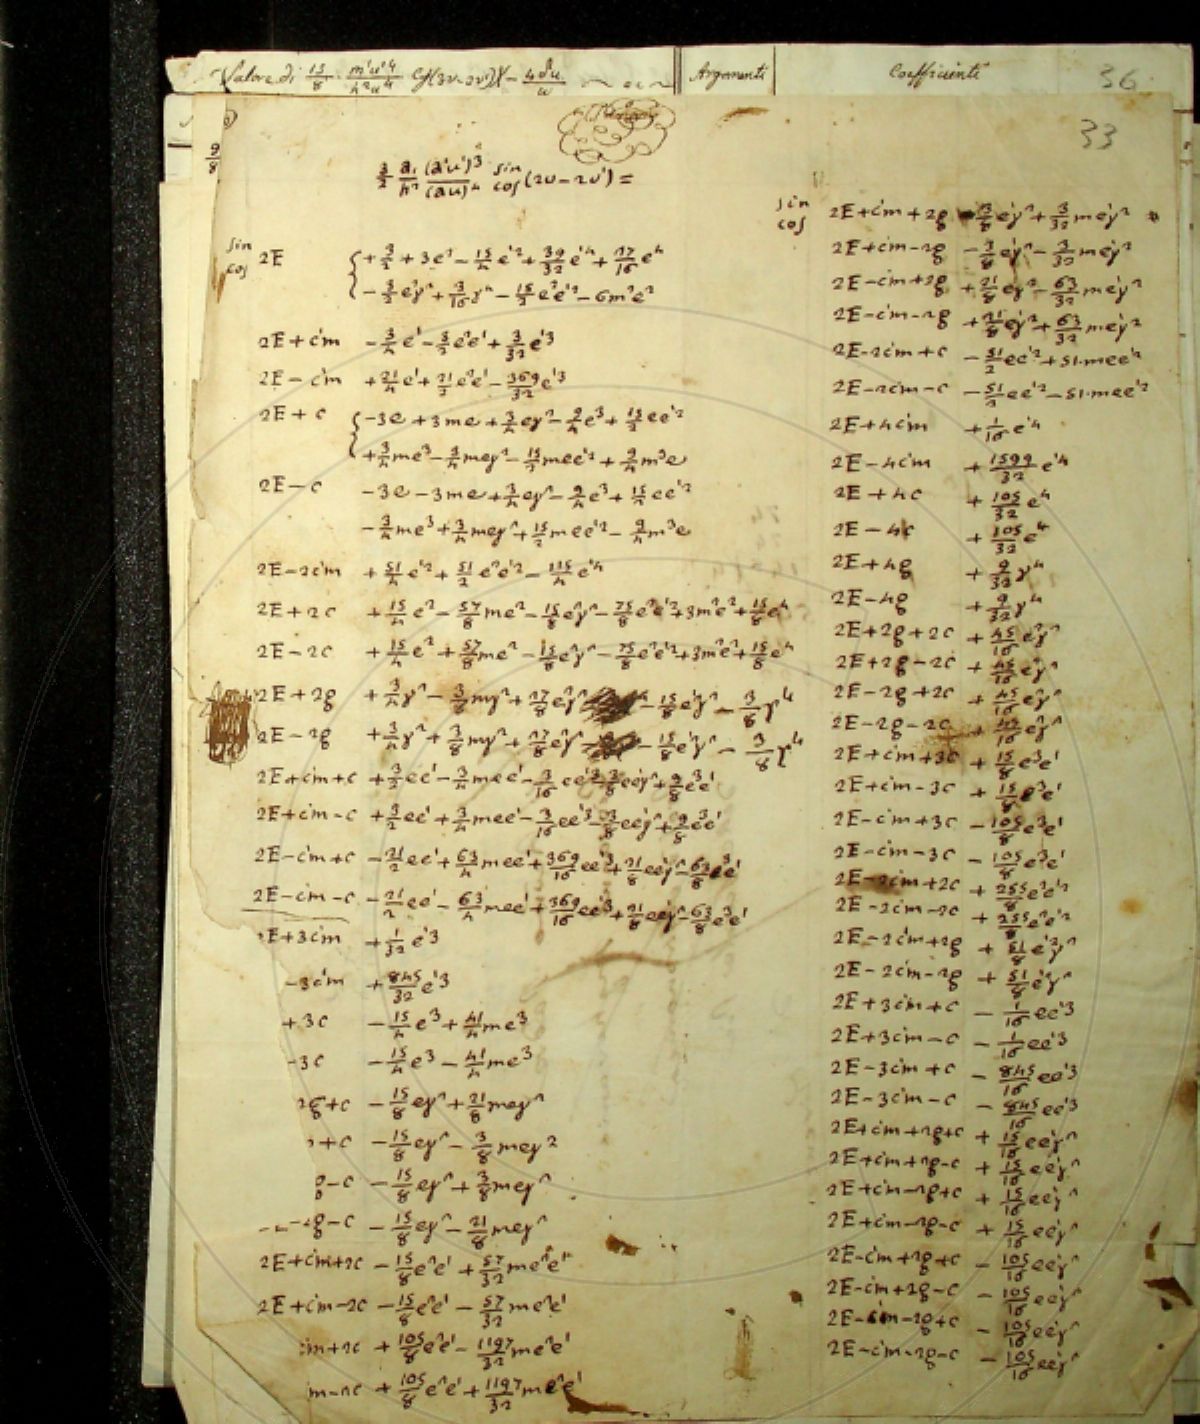 Valore di 15/8 m'u'⁴/h²u⁴ (3v-3v') X - 4δu/u
Argomenti
Coefficienti
36
33
9/8
3/2 a,/h² (a'u')³/(au)⁴ sin cos (2v-2v') =
sin cos 2E { +3/2 + 3e² - 15/4 e'² + 39/32 e'⁴ + 27/16 e⁴
- 3/2 e²γ² + 3/16 γ⁴ - 15/2 e²e'² - 6m²e²
2E+c'm - 3/4 e' - 3/2 e²e' + 3/32 e'³
2E-c'm + 21/4 e' + 21/2 e²e' - 369/32 e'³
2E+c { -3e + 3me + 3/4 eγ² - 9/4 e³ + 15/2 ee'²
+ 3/4 me³ - 3/4 meγ² - 15/2 mee'² + 9/4 m³e
2E-c -3e - 3me + 3/4 eγ² - 9/4 e³ + 15/2 ee'²
- 3/4 me³ + 3/4 meγ² + 15/2 mee'² - 9/4 m³e
2E-2c'm + 51/4 e'² + 51/2 e²e'² - 115/4 e'⁴
2E+2c + 15/4 e² - 57/8 me² - 15/8 e²γ² - 75/8 e²e'² + 3m²e² + 15/8 e⁴
2E-2c + 15/4 e² + 57/8 me² - 15/8 e²γ² - 75/8 e²e'² + 3m²e² + 15/8 e⁴
2E+2g + 3/4 γ² - 3/8 mγ² + 27/8 e²γ² - 15/8 e'²γ² - 3/8 γ⁴
2E-2g + 3/4 γ² + 3/8 mγ² + 27/8 e²γ² - 15/8 e'²γ² - 3/8 γ⁴
2E+c'm+c + 3/2 ee' - 3/4 mee' - 3/16 ee'³ - 3/8 ee'γ² + 9/8 e³e'
2E+c'm-c + 3/2 ee' + 3/4 mee' - 3/16 ee'³ - 3/8 ee'γ² + 9/8 e³e'
2E-c'm+c - 21/2 ee' + 63/4 mee' + 369/16 ee'³ + 21/8 ee'γ² - 63/8 e³e'
2E-c'm-c - 21/2 ee' - 63/4 mee' + 369/16 ee'³ + 21/8 ee'γ² - 63/8 e³e'
E+3c'm + 1/32 e'³
-3c'm + 845/32 e'³
+3c - 15/4 e³ + 41/4 me³
-3c - 15/4 e³ - 41/4 me³
2g+c - 15/8 eγ² + 21/8 meγ²
+c - 15/8 eγ² - 3/8 meγ²
g-c - 15/8 eγ² + 3/8 meγ²
-2g-c - 15/8 eγ² - 21/8 meγ²
2E+c'm+2c - 15/8 e²e' + 57/32 me²e'
2E+c'm-2c - 15/8 e²e' - 57/32 me²e'
'm+2c + 105/8 e²e' - 1197/32 me²e'
m-2c + 105/8 e²e' + 1197/32 me²e'
sin cos 2E+c'm+2g - 3/8 e'γ² + 3/32 me'γ²
2E+c'm-2g - 3/8 e'γ² - 3/32 me'γ²
2E-c'm+2g + 21/8 e'γ² - 63/32 me'γ²
2E-c'm-2g + 21/8 e'γ² + 63/32 me'γ²
2E-2c'm+c - 51/2 ee'² + 51.mee'²
2E-2c'm-c - 51/2 ee'² - 51.mee'²
2E+4c'm + 1/16 e'⁴
2E-4c'm + 1599/32 e'⁴
2E+4c + 105/32 e⁴
2E-4c + 105/32 e⁴
2E+4g + 9/32 γ⁴
2E-4g + 9/32 γ⁴
2E+2g+2c + 45/16 e²γ²
2E+2g-2c + 45/16 e²γ²
2E-2g+2c + 45/16 e²γ²
2E-2g-2c + 45/16 e²γ²
2E+c'm+3c + 15/8 e³e'
2E+c'm-3c + 15/8 e³e'
2E-c'm+3c - 105/8 e³e'
2E-c'm-3c - 105/8 e³e'
2E-2c'm+2c + 255/8 e²e'²
2E-2c'm-2c + 255/8 e²e'²
2E-2c'm+2g + 51/8 e'²γ²
2E-2c'm-2g + 51/8 e'²γ²
2E+3c'm+c - 1/16 ee'³
2E+3c'm-c - 1/16 ee'³
2E-3c'm+c - 845/16 ee'³
2E-3c'm-c - 845/16 ee'³
2E+c'm+2g+c + 15/16 ee'γ²
2E+c'm+2g-c + 15/16 ee'γ²
2E+c'm-2g+c + 15/16 ee'γ²
2E+c'm-2g-c + 15/16 ee'γ²
2E-c'm+2g+c - 105/16 ee'γ²
2E-c'm+2g-c - 105/16 ee'γ²
2E-c'm-2g+c - 105/16 ee'γ²
2E-c'm-2g-c - 105/16 ee'γ²